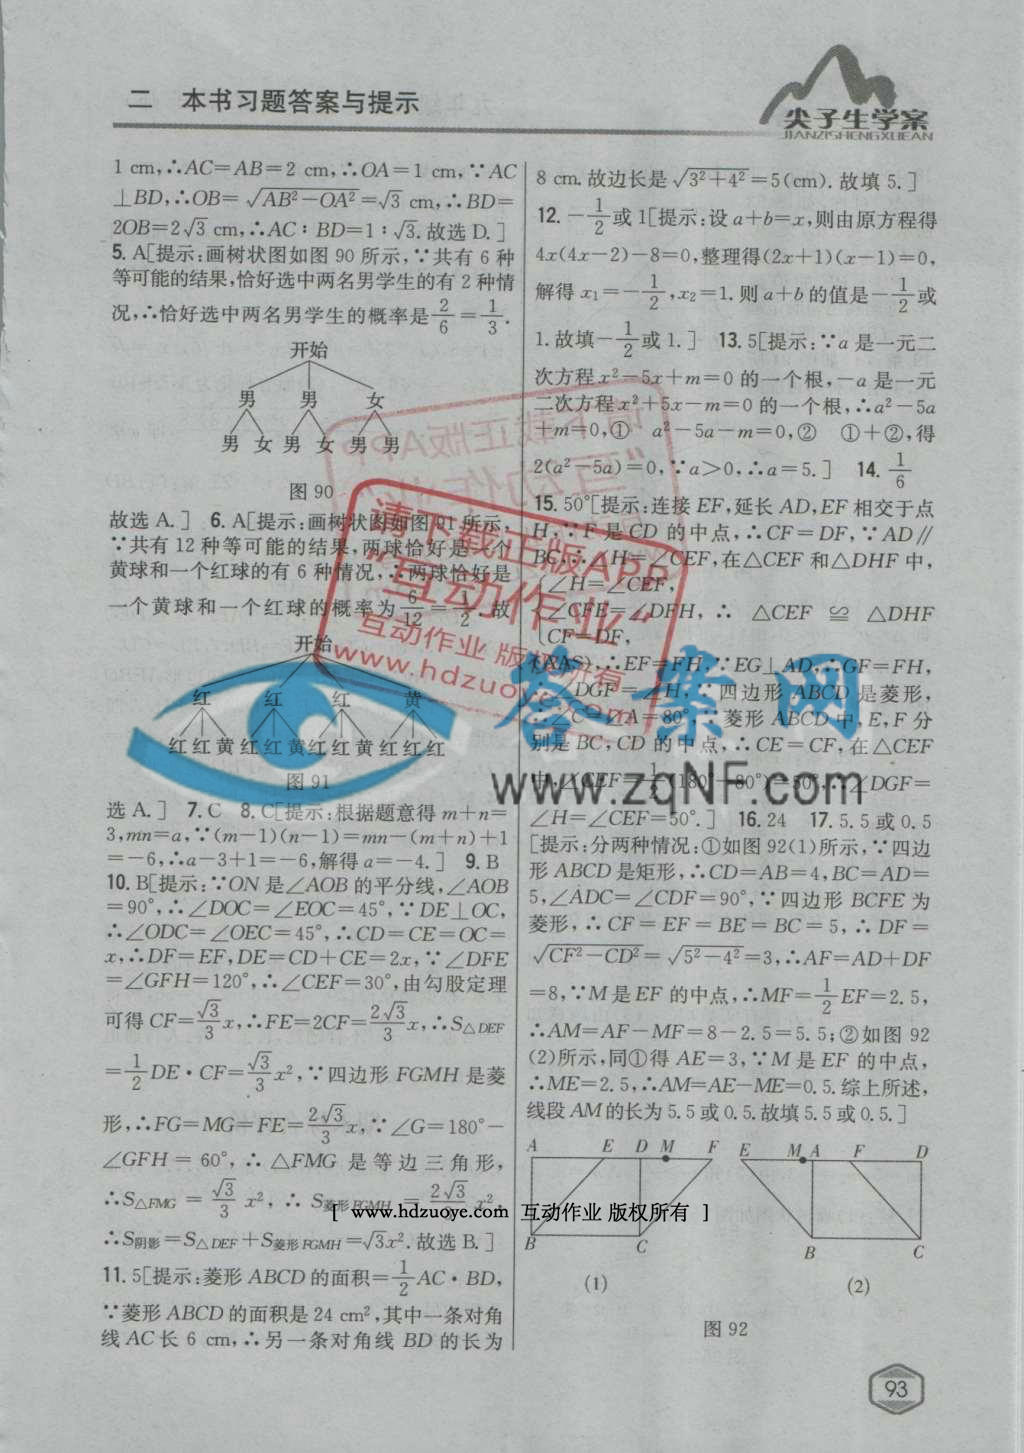 二 本书习题答案与提示
尖子生学案
JIANZISHENGXUEAN
1 cm,∴AC=AB=2 cm,∴OA=1 cm,∵AC
⊥BD,∴OB=√(AB²-OA²)=√3 cm,∴BD=
2OB=2√3 cm,∴AC∶BD=1∶√3.故选D.]
5. A[提示:画树状图如图 90 所示,∵共有 6 种
等可能的结果,恰好选中两名男学生的有 2 种情
况,∴恰好选中两名男学生的概率是2/6=1/3.
开始
男 男 女
男 女 男 女 男 男
图 90
故选 A.] 6. A[提示:画树状图如图 91 所示,
∵共有 12 种等可能的结果,两球恰好是一个
黄球和一个红球的有 6 种情况,∴两球恰好是
一个黄球和一个红球的概率为6/12=1/2.故
开始
红 红 红 黄
红 红 黄 红 红 黄 红 红 黄 红 红 红
图 91
选 A.] 7. C 8. C[提示:根据题意得 m+n=
3,mn=a,∵(m-1)(n-1)=mn-(m+n)+1
=-6,∴a-3+1=-6,解得 a=-4.] 9. B
10. B[提示:∵ON 是∠AOB 的平分线,∠AOB
=90°,∴∠DOC=∠EOC=45°,∵DE⊥OC,
∴∠ODC=∠OEC=45°,∴CD=CE=OC=
x,∴DF=EF,DE=CD+CE=2x,∵∠DFE
=∠GFH=120°,∴∠CEF=30°,由勾股定理
可得 CF=√3/3x,∴FE=2CF=2√3/3x,∴S△DEF
=1/2DE·CF=√3/3x²,∵四边形 FGMH 是菱
形,∴FG=MG=FE=2√3/3x,∵∠G=180°-
∠GFH=60°,∴△FMG 是等边三角形,
∴S△FMG=√3/3x²,∴S菱形FGMH=2√3/3x²,
∴S阴影=S△DEF+S菱形FGMH=√3x².故选 B.]
11. 5[提示:菱形 ABCD 的面积=1/2AC·BD,
∵菱形 ABCD 的面积是 24 cm²,其中一条对角
线 AC 长 6 cm,∴另一条对角线 BD 的长为
8 cm.故边长是√(3²+4²)=5(cm).故填 5.]
12. -1/2或 1[提示:设 a+b=x,则由原方程得
4x(4x-2)-8=0,整理得(2x+1)(x-1)=0,
解得 x₁=-1/2,x₂=1.则 a+b 的值是-1/2或
1.故填-1/2或 1.] 13. 5[提示:∵a 是一元二
次方程 x²-5x+m=0 的一个根,-a 是一元
二次方程 x²+5x-m=0 的一个根,∴a²-5a
+m=0,① a²-5a-m=0,② ①+②,得
2(a²-5a)=0,∵a>0,∴a=5.] 14. 1/6
15. 50°[提示:连接 EF,延长 AD,EF 相交于点
H,∵F 是 CD 的中点,∴CF=DF,∵AD∥
BC,∴∠H=∠CEF,在△CEF 和△DHF 中,
∠H=∠CEF,
∠CFE=∠DFH,∴△CEF≌△DHF
CF=DF,
(AAS),∴EF=FH,∵EG⊥AD,∴GF=FH,
∴∠DGF=∠H,∵四边形 ABCD 是菱形,
∴∠C=∠A=80°,∵菱形 ABCD 中,E,F 分
别是 BC,CD 的中点,∴CE=CF,在△CEF
中,∠CEF=1/2(180°-80°)=50°,∴∠DGF=
∠H=∠CEF=50°.] 16. 24 17. 5.5 或 0.5
[提示:分两种情况:①如图 92(1)所示,∵四边
形 ABCD 是矩形,∴CD=AB=4,BC=AD=
5,∠ADC=∠CDF=90°,∵四边形 BCFE 为
菱形,∴CF=EF=BE=BC=5,∴DF=
√(CF²-CD²)=√(5²-4²)=3,∴AF=AD+DF
=8,∵M 是 EF 的中点,∴MF=1/2EF=2.5,
∴AM=AF-MF=8-2.5=5.5;②如图 92
(2)所示,同①得 AE=3,∵M 是 EF 的中点,
∴ME=2.5,∴AM=AE-ME=0.5.综上所述,
线段 AM 的长为 5.5 或 0.5.故填 5.5 或 0.5.]
A E D M F
B C
(1)
E M A F D
B C
(2)
图 92
93
请下载正版APP
"互动作业"
互动作业 版权所有
www.hdzuoye.com
答案网
www.zqNF.com
[ www.hdzuoye.com 互动作业 版权所有 ]